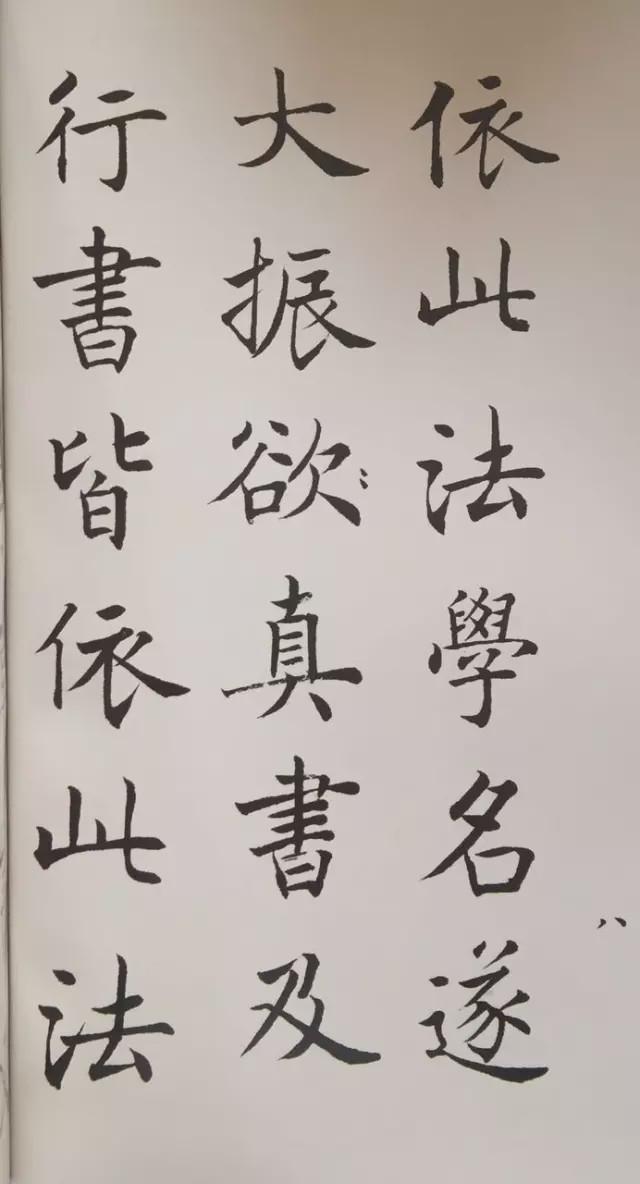 依此法學名遂
大振欲真書及
行書皆依此法
八